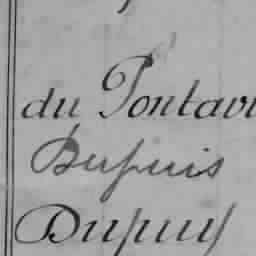 du Pontavi
Dupuis
Dupuy